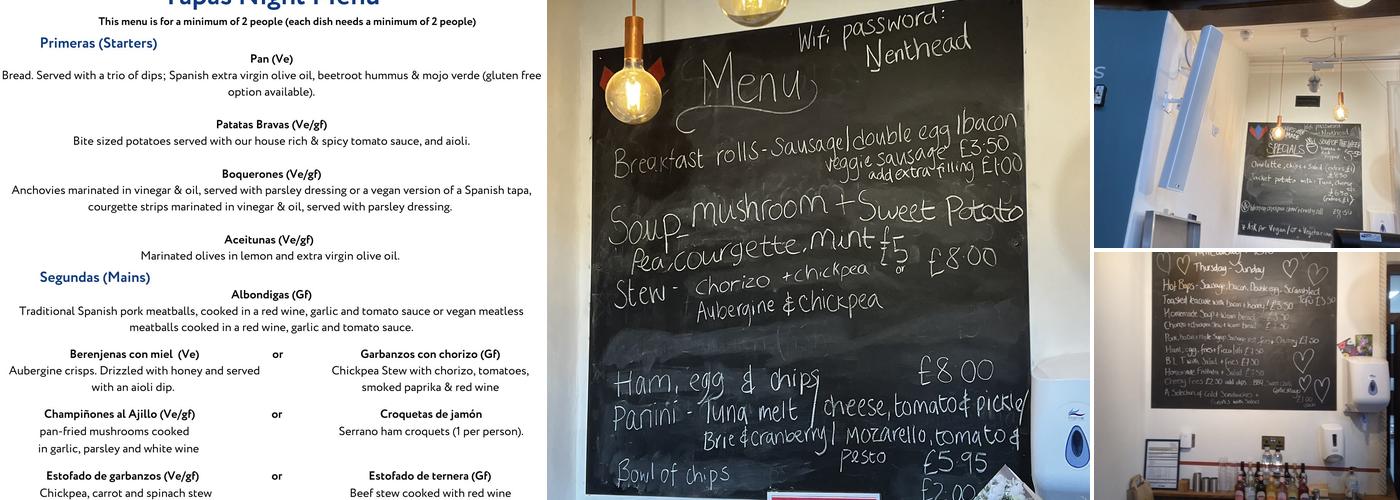 Tapas Night Menu
This menu is for a minimum of 2 people (each dish needs a minimum of 2 people)
Primeras (Starters)
Pan (Ve)
Bread. Served with a trio of dips; Spanish extra virgin olive oil, beetroot hummus & mojo verde (gluten free
option available).
Patatas Bravas (Ve/gf)
Bite sized potatoes served with our house rich & spicy tomato sauce, and aioli.
Boquerones (Ve/gf)
Anchovies marinated in vinegar & oil, served with parsley dressing or a vegan version of a Spanish tapa,
courgette strips marinated in vinegar & oil, served with parsley dressing.
Aceitunas (Ve/gf)
Marinated olives in lemon and extra virgin olive oil.
Segundas (Mains)
Albondigas (Gf)
Traditional Spanish pork meatballs, cooked in a red wine, garlic and tomato sauce or vegan meatless
meatballs cooked in a red wine, garlic and tomato sauce.
Berenjenas con miel (Ve) or Garbanzos con chorizo (Gf)
Aubergine crisps. Drizzled with honey and served Chickpea Stew with chorizo, tomatoes,
with an aioli dip. smoked paprika & red wine
Champiñones al Ajillo (Ve/gf) or Croquetas de jamón
pan-fried mushrooms cooked Serrano ham croquets (1 per person).
in garlic, parsley and white wine
Estofado de garbanzos (Ve/gf) or Estofado de ternera (Gf)
Chickpea, carrot and spinach stew Beef stew cooked with red wine
Wifi password:
Nenthead
Menu
Breakfast rolls - Sausage/double egg/bacon
veggie sausage £3.50
add extra filling £1.00
Soup - mushroom + Sweet Potato
Pea, courgette, mint £5
or
Stew - chorizo + chickpea £8.00
Aubergine & chickpea
Ham, egg & chips £8.00
Panini - Tuna melt / cheese, tomato & pickle/
Brie & cranberry / Mozarello, tomato &
pesto £5.95
Bowl of chips £2.00
Wifi password
Nenthead
SPECIALS
SOUP OF THE WEEK
Omelette, chips + Salad
Jacket potato with: Tuna, cheese
Ask for Vegan/GF + Vegetarian
Thursday - Sunday
Hot Baps - Sausage, bacon, Double egg, Scrambled
Tofu £3.50
Toasted
Homemade Soup + Warm bread
Ham, egg, fries + Piccalilli
B.L.T with Salad + fries
Homemade
Cheesy Fries £2.50 add dips
A Selection of Cold Sandwiches +